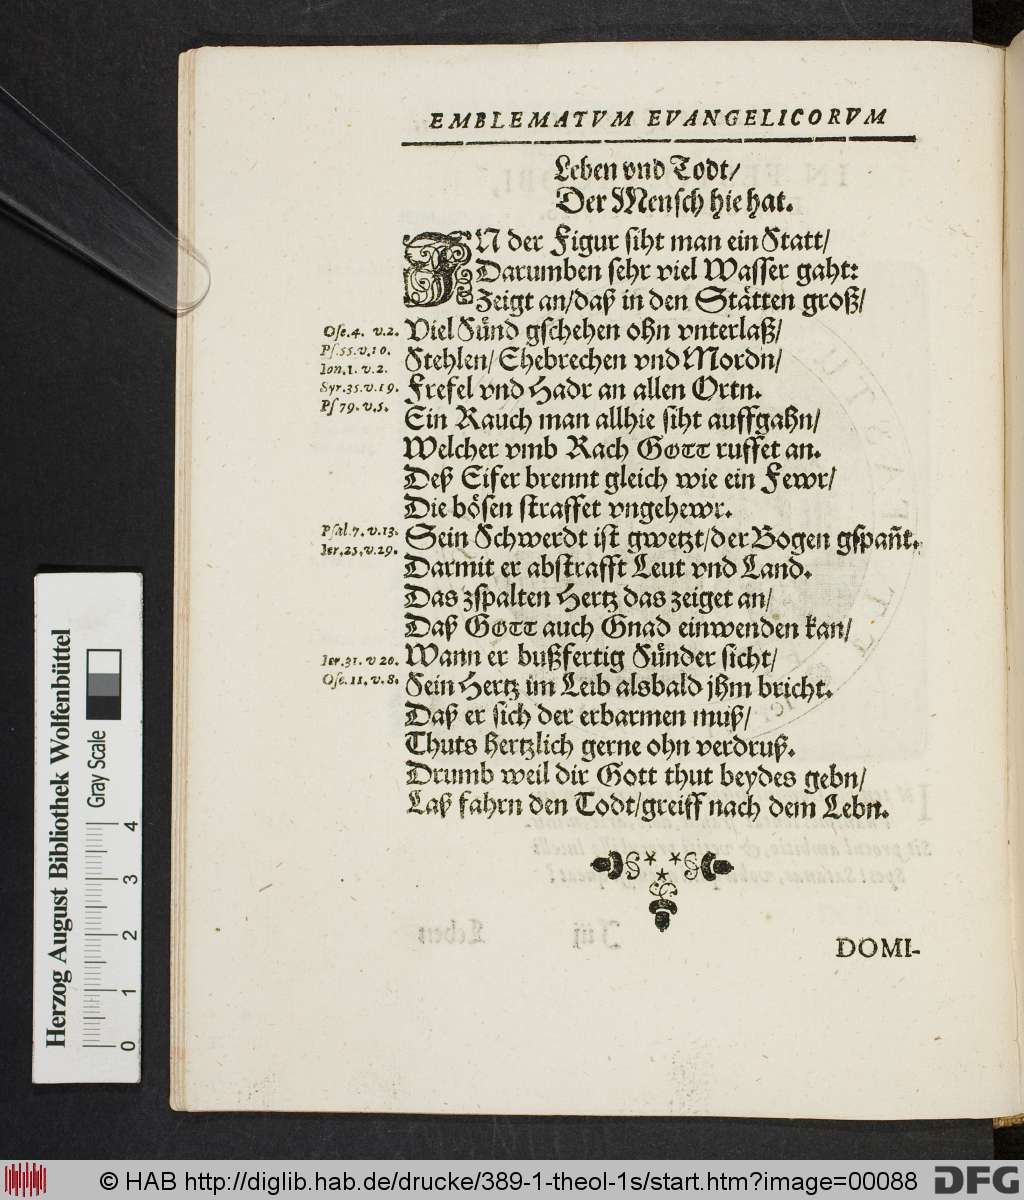 EMBLEMATVM EVANGELICORVM
Leben vnd Todt/
Der Mensch hie hat.
IN der Figur siht man ein Statt/
Darumben sehr viel Wasser gaht:
Zeigt an/daß in den Stätten groß/
Ose.4. v.2. Viel Sünd gschehen ohn vnterlaß/
Ps.55.v.10. Stehlen/ Ehebrechen vnd Mordn/
Ion.1. v.2.
Syr.35.v.19. Frefel vnd Hadr an allen Ortn.
Ps 79. v.5. Ein Rauch man allhie siht auffgahn/
Welcher vmb Rach GOTT ruffet an.
Deß Eifer brennt gleich wie ein Fewr/
Die bösen straffet vngehewr.
Psal.7. v.13. Sein Schwerdt ist gwetzt/der Bogen gspañt.
Ier.25.v.29.
Darmit er abstrafft Leut vnd Land.
Das zspalten Hertz das zeiget an/
Daß GOTT auch Gnad einwenden kan/
Ier.31. v 20. Wann er bußfertig Sünder sicht/
Ose.11. v.8. Sein Hertz im Leib alsbald jhm bricht.
Daß er sich der erbarmen muß/
Thuts hertzlich gerne ohn verdruß.
Drumb weil dir Gott thut beydes gebn/
Laß fahrn den Todt/greiff nach dem Lebn.
DOMI-
Herzog August Bibliothek Wolfenbüttel
Gray Scale
0 1 2 3 4
© HAB http://diglib.hab.de/drucke/389-1-theol-1s/start.htm?image=00088
DFG